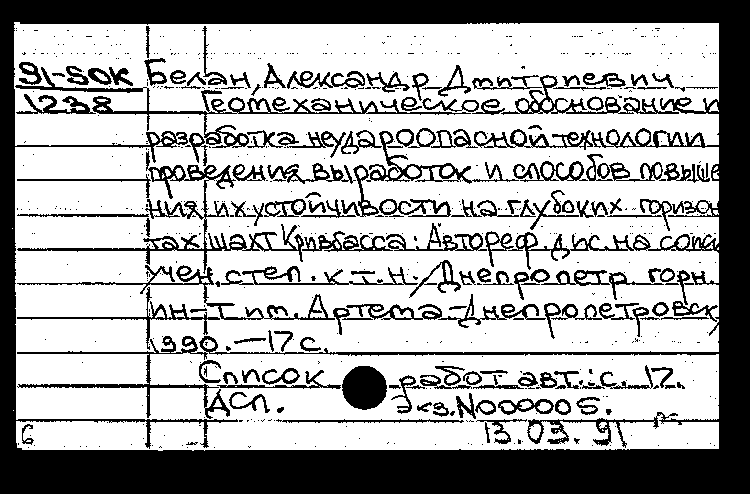 91-SOK Белан, Александр Дмитриевич.
1238 Геомеханическое обоснование и
разработка неудароопасной технологии
проведения выработок и способов повыше
ния их устойчивости на глубоких горизон
тах шахт Кривбасса: Автореф. дис. на соиск
учен. степ. к.т.н. / Днепропетр. горн.
ин-т им. Артема - Днепропетровск,
1990. — 17 с.
Список работ авт.: с. 17.
ДСП. Экз. N000005.
6 13.03.91